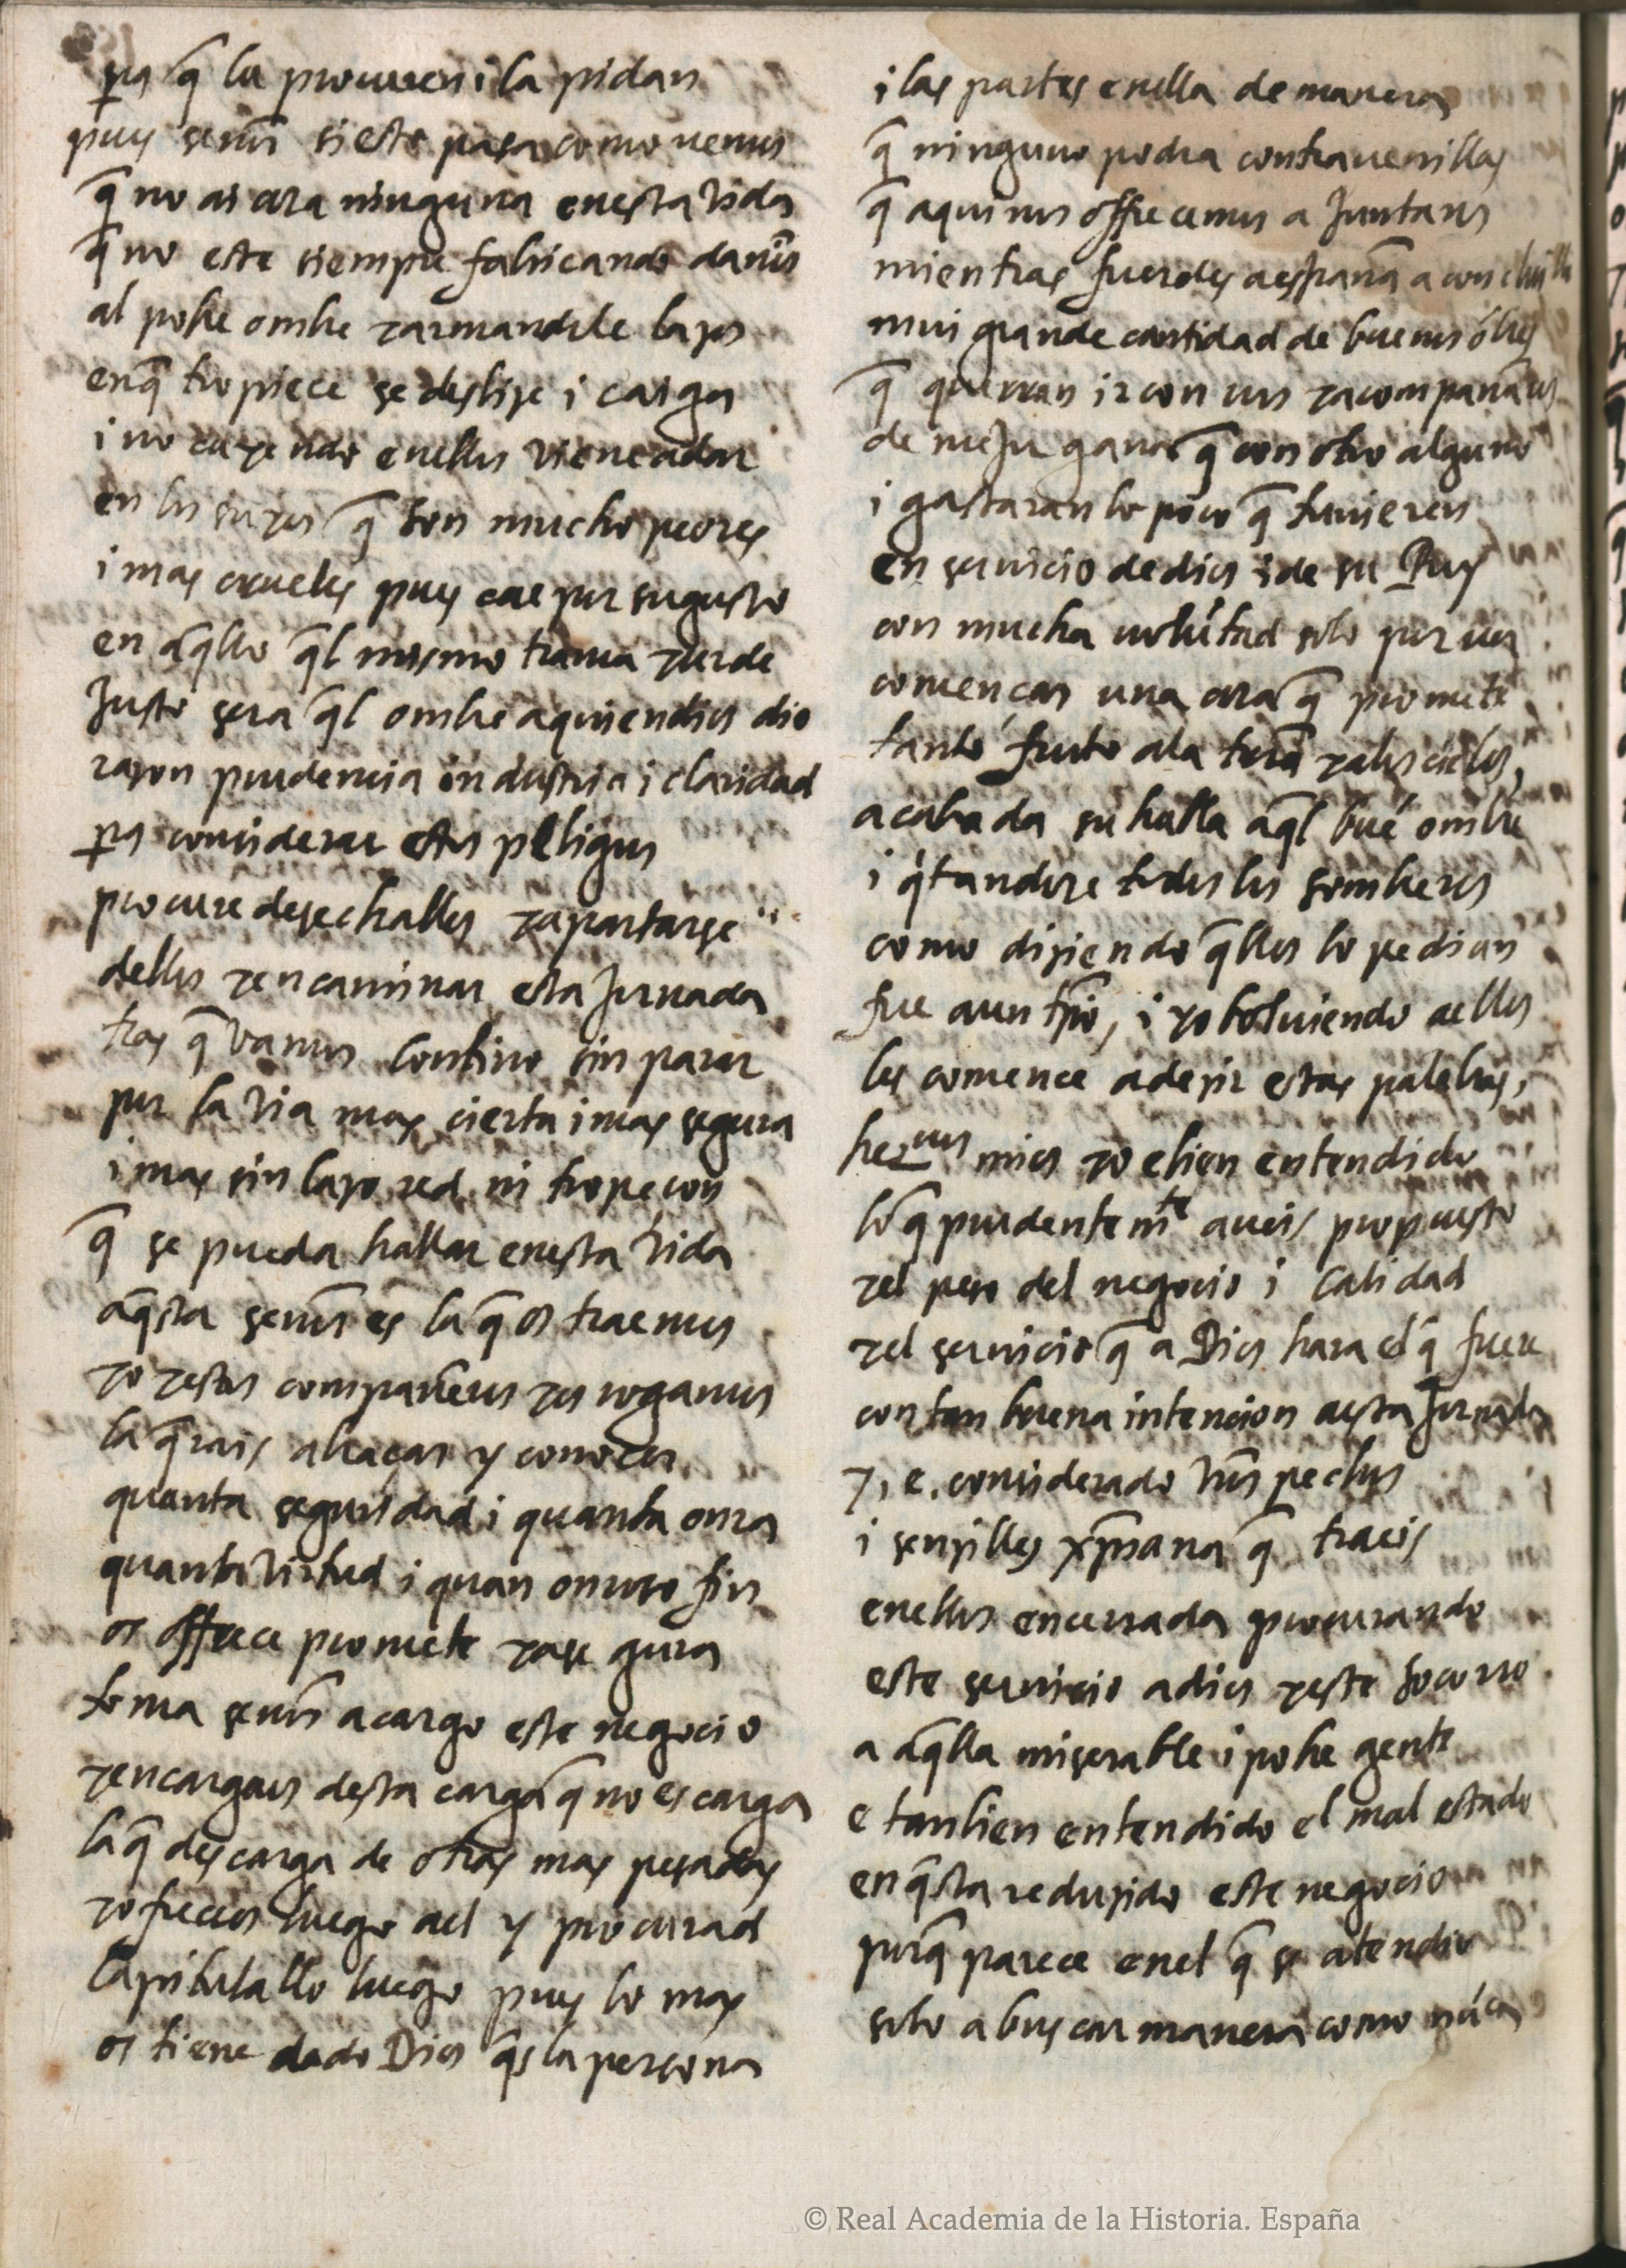 pa q̄ la procuren i la pidan
pues señor si esto pasa como uemos
q̄ no ai ora ninguna en esta uida
q̄ no este siempre fabricando daños
al pobre ombre y armandole lazos
en q̄ tropiece se deslize i caiga
i no cayendo en ellos uiene a dar
en los suyos q̄ son mucho peores
i mas crueles pues cae por su gusto
en aq̄llo q̄l mismo trama y urde
Justo sera q̄l ombre a quien dios dio
razon prudencia industria i claridad
pa considerar estos peligros
procure desechallos y apartarse
dellos y encaminar esta Jornada
tras q̄ uamos contino sin parar
por la uia mas cierta i mas segura
i mas sin lazo red ni tropeçon
q̄ se pueda hallar en esta uida
aq̄sta señor es la q̄ os traemos
yo y estos compañeros y os rogamos
la q̄rais abraçar y conocer
quanta seguridad i quanta onra
quanta uirtud i quan onroso fin
os offrece promete y asegura
toma señor a cargo este negocio
y encargaos desta carga q̄ no es carga
la q̄ descarga de otras mas pesadas
y ofreceos luego a el y procurad
capitulallo luego pues lo mas
os tiene dado Dios q̄s la persona
i las partes en ella de manera
q̄ ninguno podra contrauenillas
q̄ aqui nos offrecemos a Juntaros
mientras fuerdes a españa a concluillo
mui grande cantidad de buenos ōbres
q̄ querran ir con uos y acompañaros
de meJor gana q̄ con otro alguno
i gastaran lo poco q̄ tuuieren
en seruicio de dios i de su Rey
con mucha uolūtad solo por uer
començar una ora q̄ promete
tanto fruto a la tierra y a los cielos,
acabada su habla aq̄l buē ombre
i q̄tandose todos los sombreros
como diziendo q̄llos lo pedian
fue a un tpo, i yo boluiendo a ellos
les comence a dezir estas palabras,
hermnos mios yo e bien entendido
lo q̄ prudentemte aueis propuesto
y el peso del negocio i calidad
y el seruicio q̄ a Dios hara el q̄ fuere
con tan buena intencion a esta Jornada
y, e, considerado uros pechos
i senzilles xp̄iana q̄ traeis
en ellos encerrada procurando
este seruicio a dios y este socorro
a aq̄lla miserable i pobre gente
e tanbien entendido el mal estado
en q̄sta reduzido este negocio
porq̄ parece en el q̄ se atendio
solo a buscar manera como nūca
© Real Academia de la Historia. España